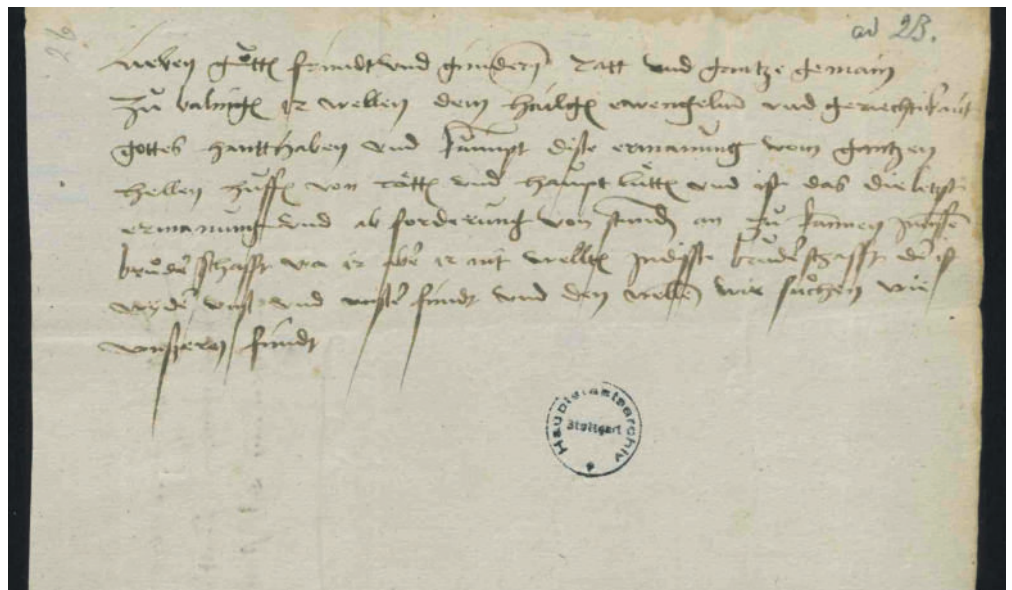 26
ad 23.
Lieben gůtten frundt und gundern Ratt und gantze gemain
zů balingen ir wellen dem hailgen ewengelium und gerechtikait
gottes hantthaben und kumpt diße ermanung vom gantzen
hellen huffen von rätten und haupt lütten und ist das die letzst
ermanung und ab forderung von stund an zů kamen in
brůderschafft wa ir aber ir nit welten in disse brůderschafft der ist
wyder unß und unßer findt und den wellen wir sůchen wie
unßeren findt
Hauptstaatsarchiv
Stuttgart